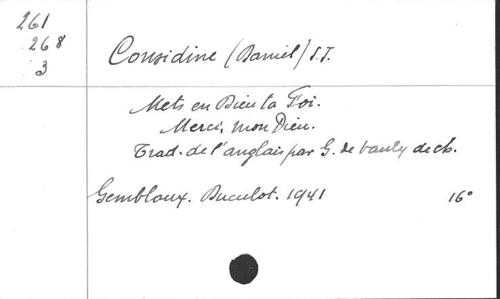 261
268
3
Considine (Daniel) S.J.
Mets en Dieu ta Foi.
Merci, mon Dieu.
Trad. de l'anglais par G. de
Gembloux. Duculot. 1941 16°